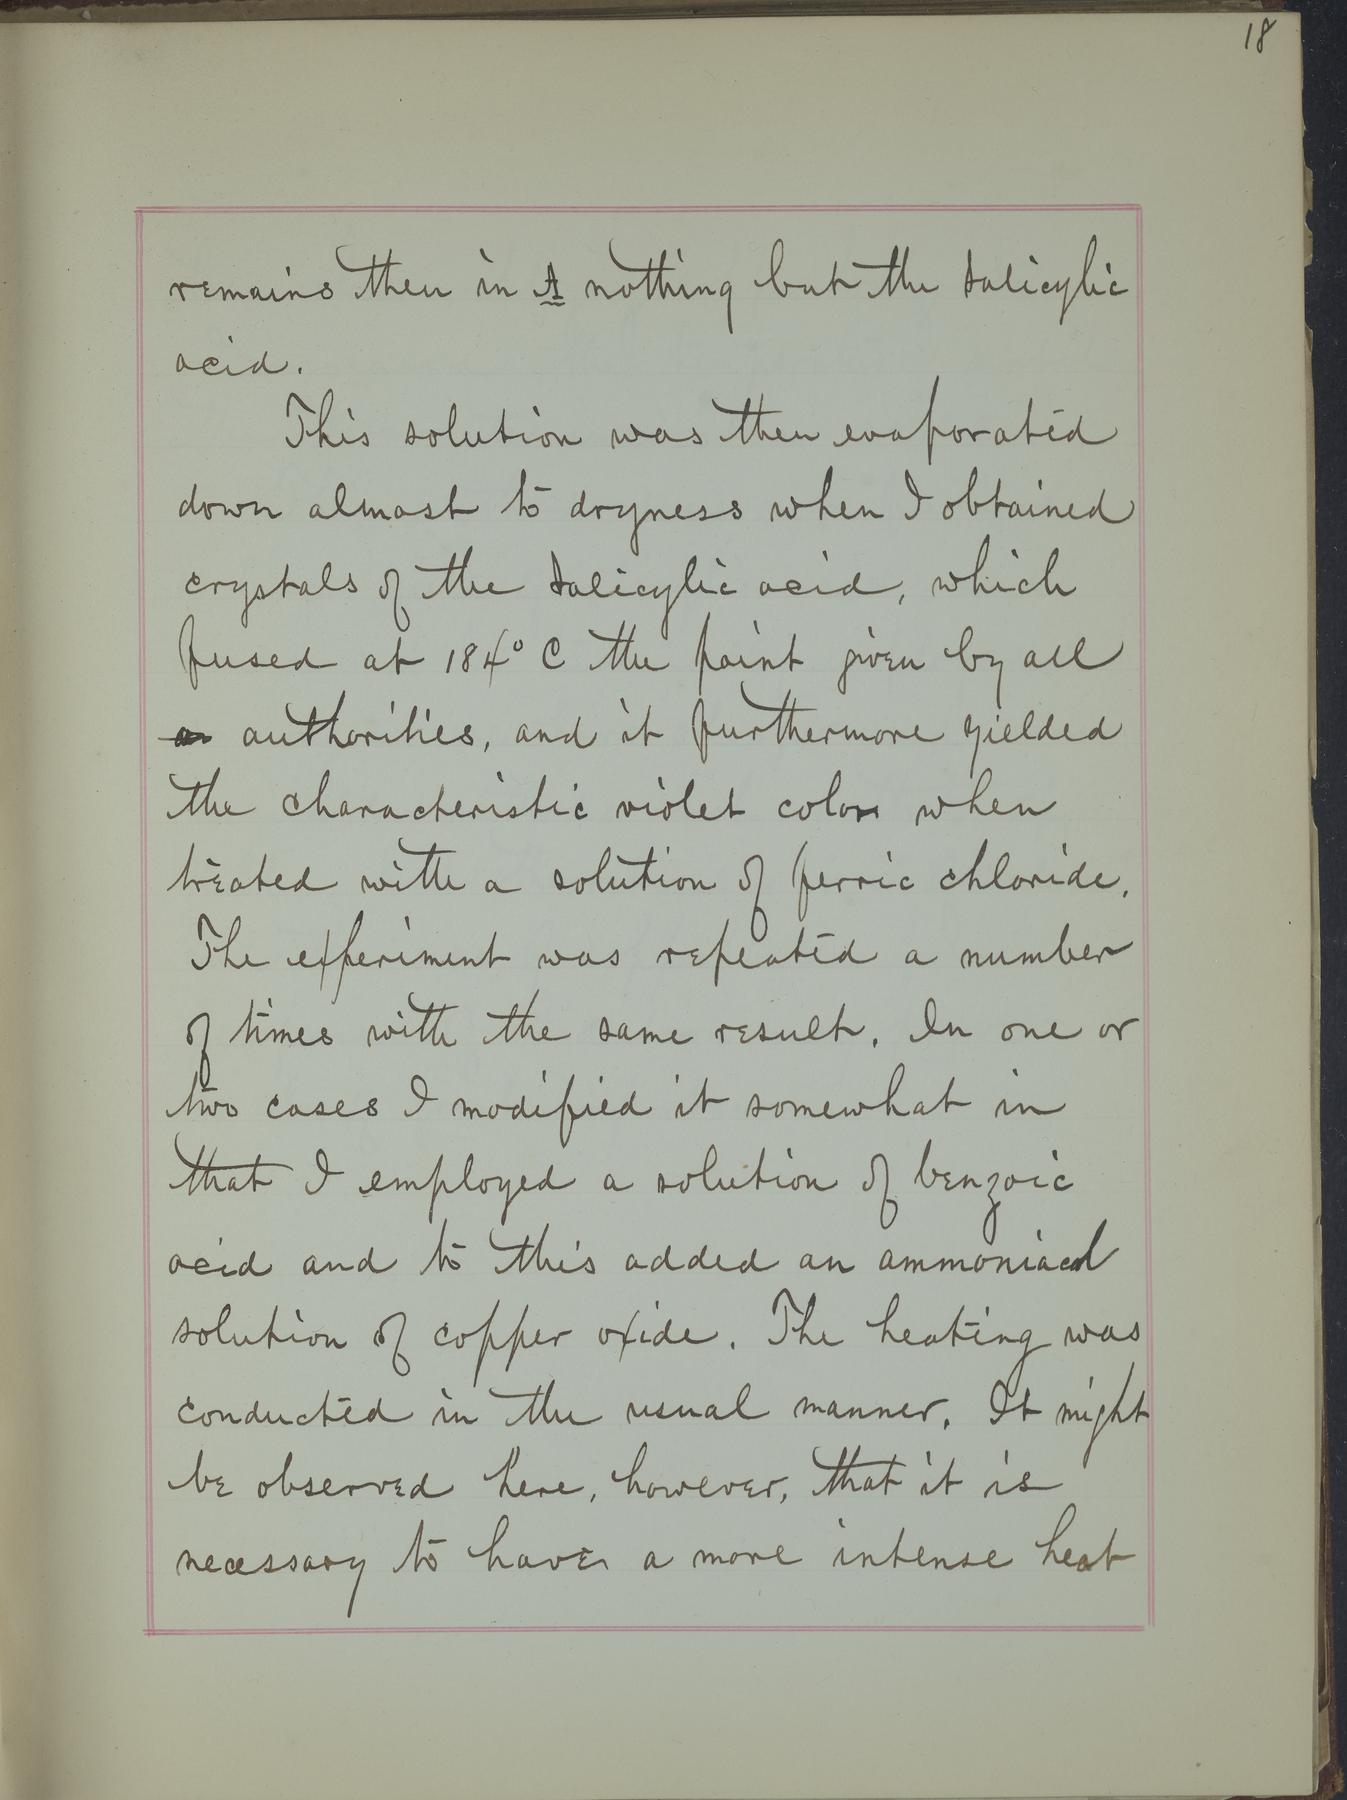 18
remains then in A nothing but the Salicylic
acid.
This solution was then evaporated
down almost to dryness when I obtained
crystals of the Salicylic acid, which
fused at 184° C the point given by all
a authorities, and it furthermore yielded
the characteristic violet color when
treated with a solution of ferric chloride.
The experiment was repeated a number
of times with the same result. In one or
two cases I modified it somewhat in
that I employed a solution of benzoic
acid and to this added an ammoniacal
solution of copper oxide. The heating was
conducted in the usual manner. It might
be observed here, however, that it is
necessary to have a more intense heat